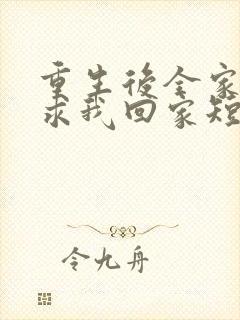 重生後全家
求我回家短
令九舟